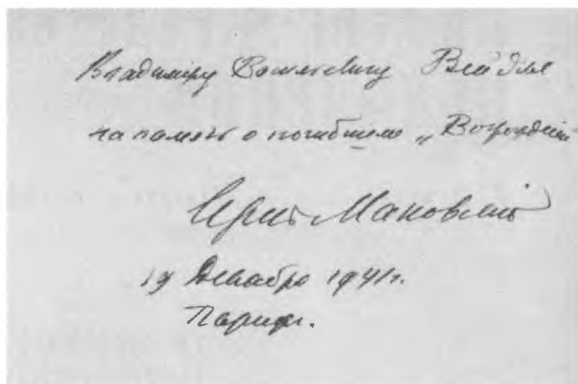 Владимиру Васильевичу Вейдле
на память о погибшем „Возрождении
Сергей Маковский
19 Декабря 1941г.
Париж.